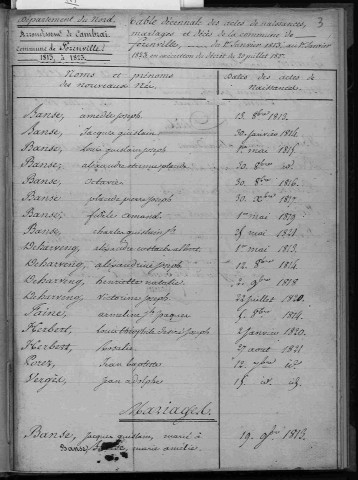 Département du Nord.
Arrondissement de Cambrai
commune de
1813, à 1823.
3
Table décennale des actes de naissances,
mariages et décès de la commune de
du 1er Janvier 1813, au 1er Janvier
1823 en exécution du décret du 20 juillet 1807.
Noms et prénoms
des nouveaux nés.
Dates des actes de
Naissances.
Banse, amédée joseph 13. 8bre 1813.
Banse, Jacques guislain 30 janvier 1814.
Banse, Louis guislain joseph 1er mai 1815.
Banse, alexandre placide 30. 8bre id.
Banse, octavie 30. 8bre 1816.
Banse, placide pierre joseph 30. Xbre 1817.
Banse, fidèle amand 1er mai 1819.
Banse, charles guislain 1821
Deharveng, alexandre albert 1er mai 1813.
Deharveng, alexandrine joseph 12. 8bre 1814.
Deharveng, henriette natalie 2. 9bre 1818
Deharveng, victorine joseph 22 juillet 1820.
Taine, armeline jacques 8bre 1814.
Herbert, joseph 2 janvier 1820.
Herbert, rosalie 27 aout 1821
Jean baptiste 12. id.
Vergès, jean adolphe 15. id.
Mariages.
Banse, jacques guislain, marié à 19. 9bre 1813.
Banse marie amélie